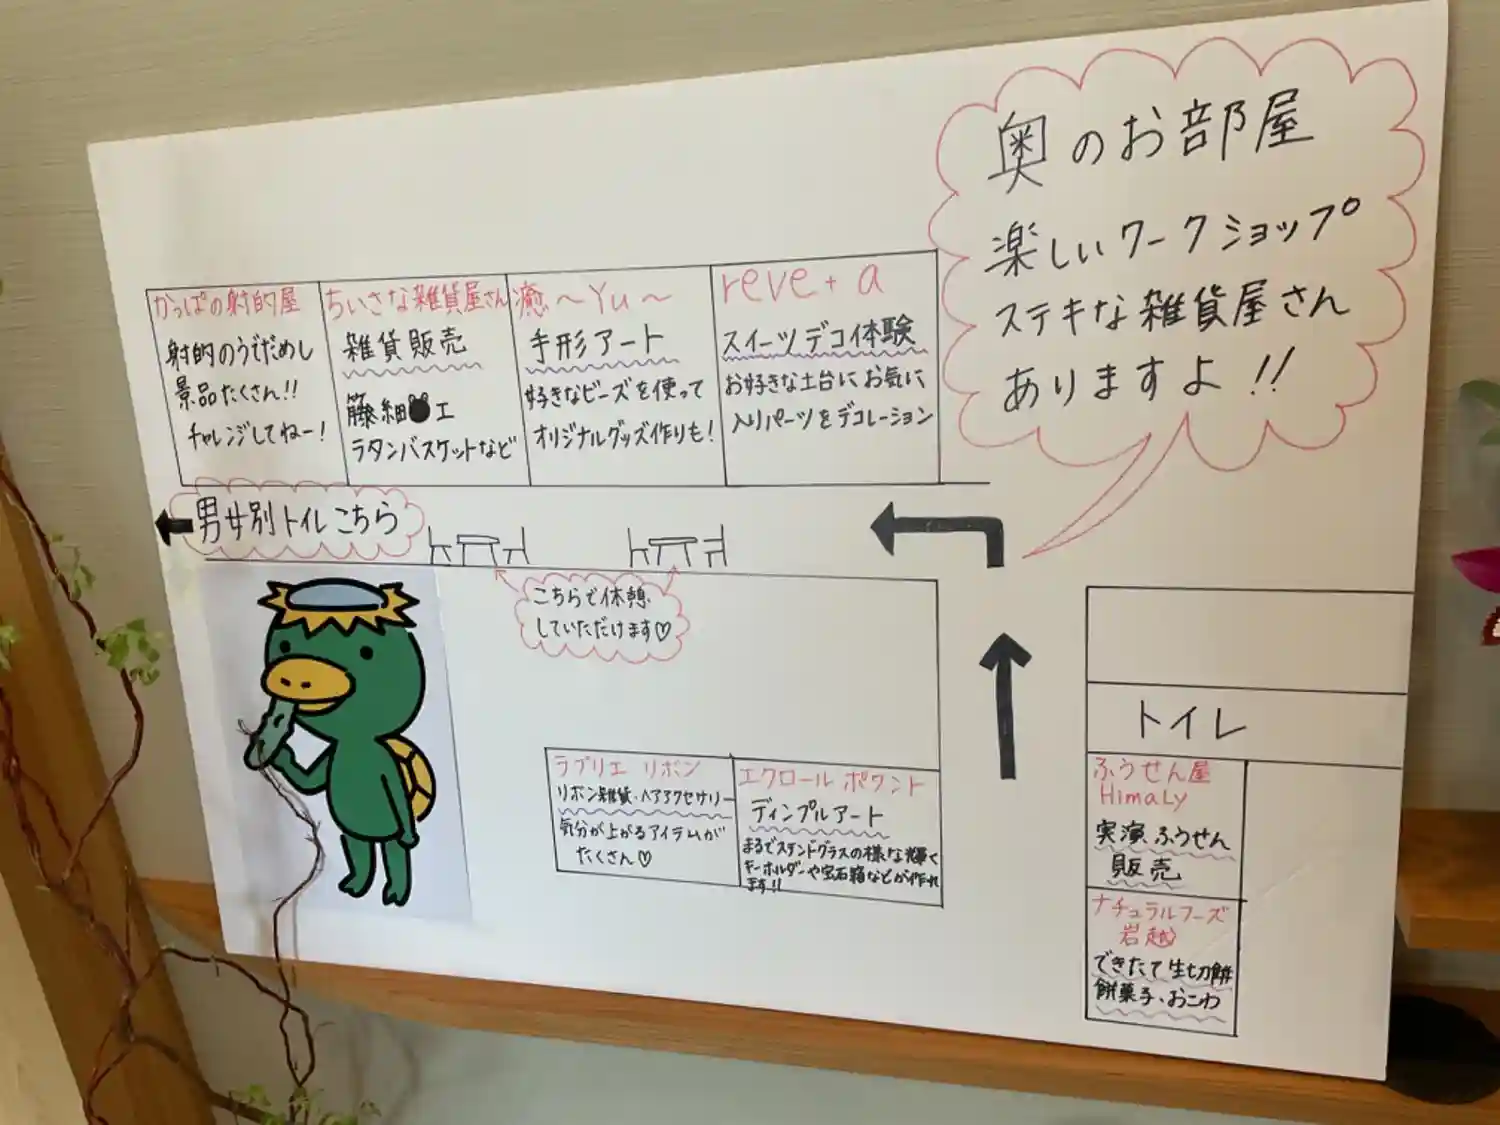 奥のお部屋
楽しいワークショップ
ステキな雑貨屋さん
ありますよ!!
かっぱの射的屋
射的のうでだめし
景品たくさん!!
チャレンジしてねー!
ちいさな雑貨屋さん
雑貨販売
籐細工
ラタンバスケットなど
癒～Yu～
手形アート
好きなビーズを使って
オリジナルグッズ作りも!
reve+a
スイーツデコ体験
お好きな土台にお気に
入りパーツをデコレーション
男女別トイレこちら
こちらで休憩
していただけます♡
ラブリエ リボン
リボン雑貨・ヘアアクセサリー
気分が上がるアイテムが
たくさん♡
エクロール ポワント
ディンプルアート
まるでステンドグラスの様な輝く
キーホルダーや宝石箱などが作れ
ます!!
トイレ
ふうせん屋
HimaLy
実演ふうせん
販売
ナチュラルフーズ
岩越
できたて生切餅
餅菓子・おこわ